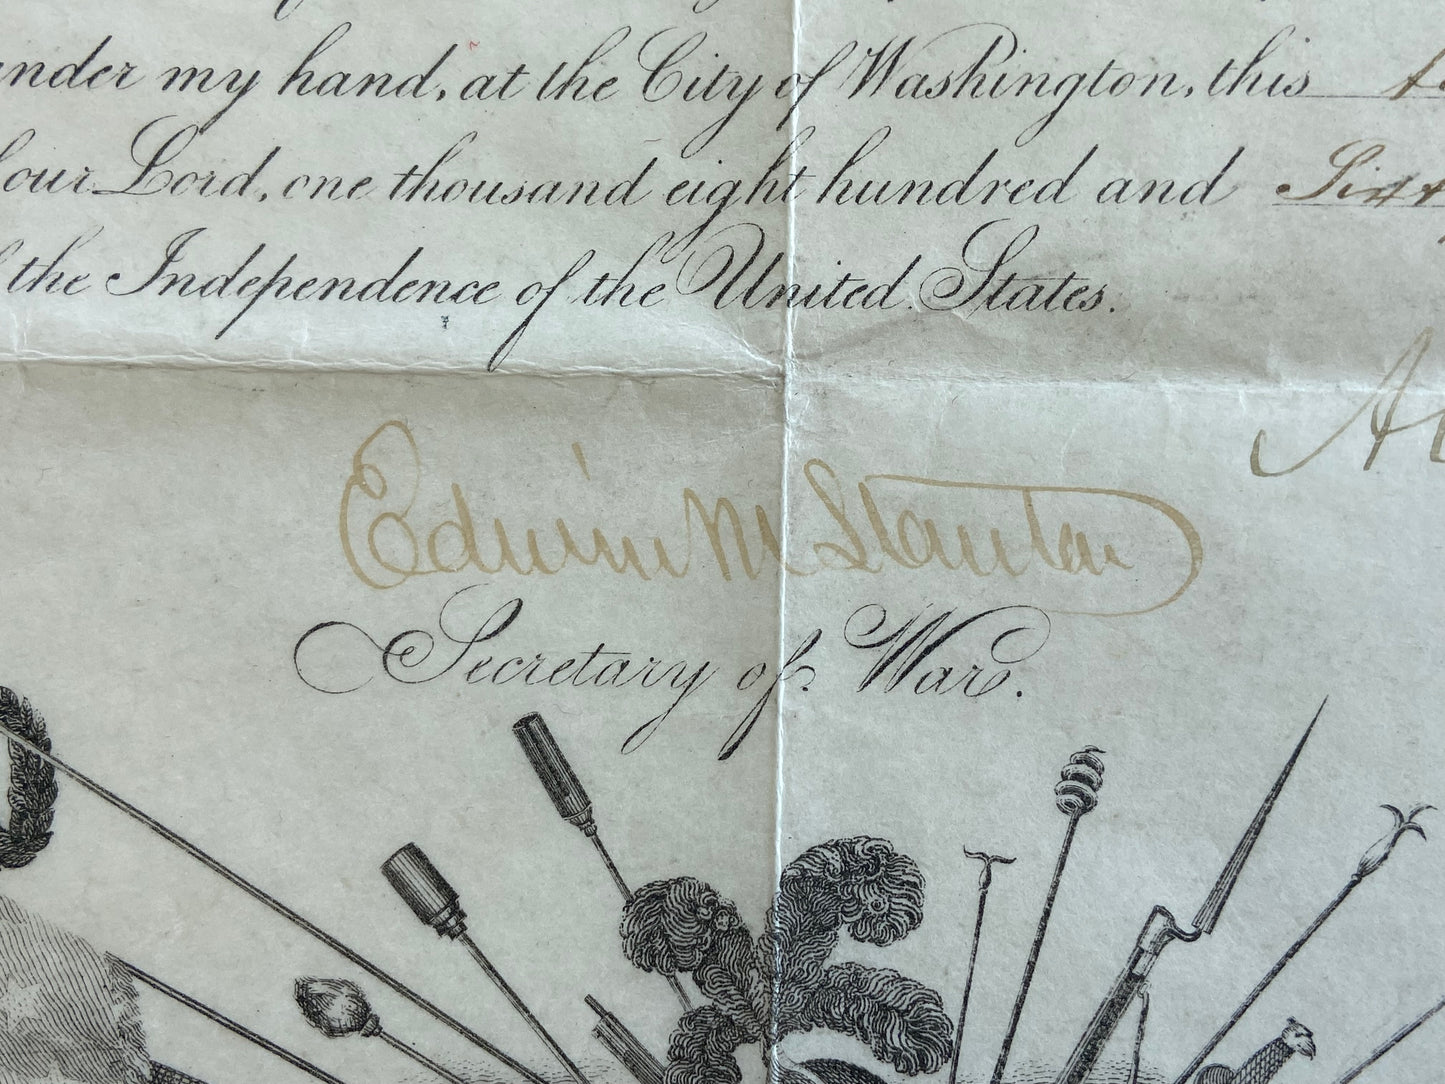 under my hand, at the City of Washington, this
our Lord, one thousand eight hundred and
the Independence of the United States.
Edwin M Stanton
Secretary of War.